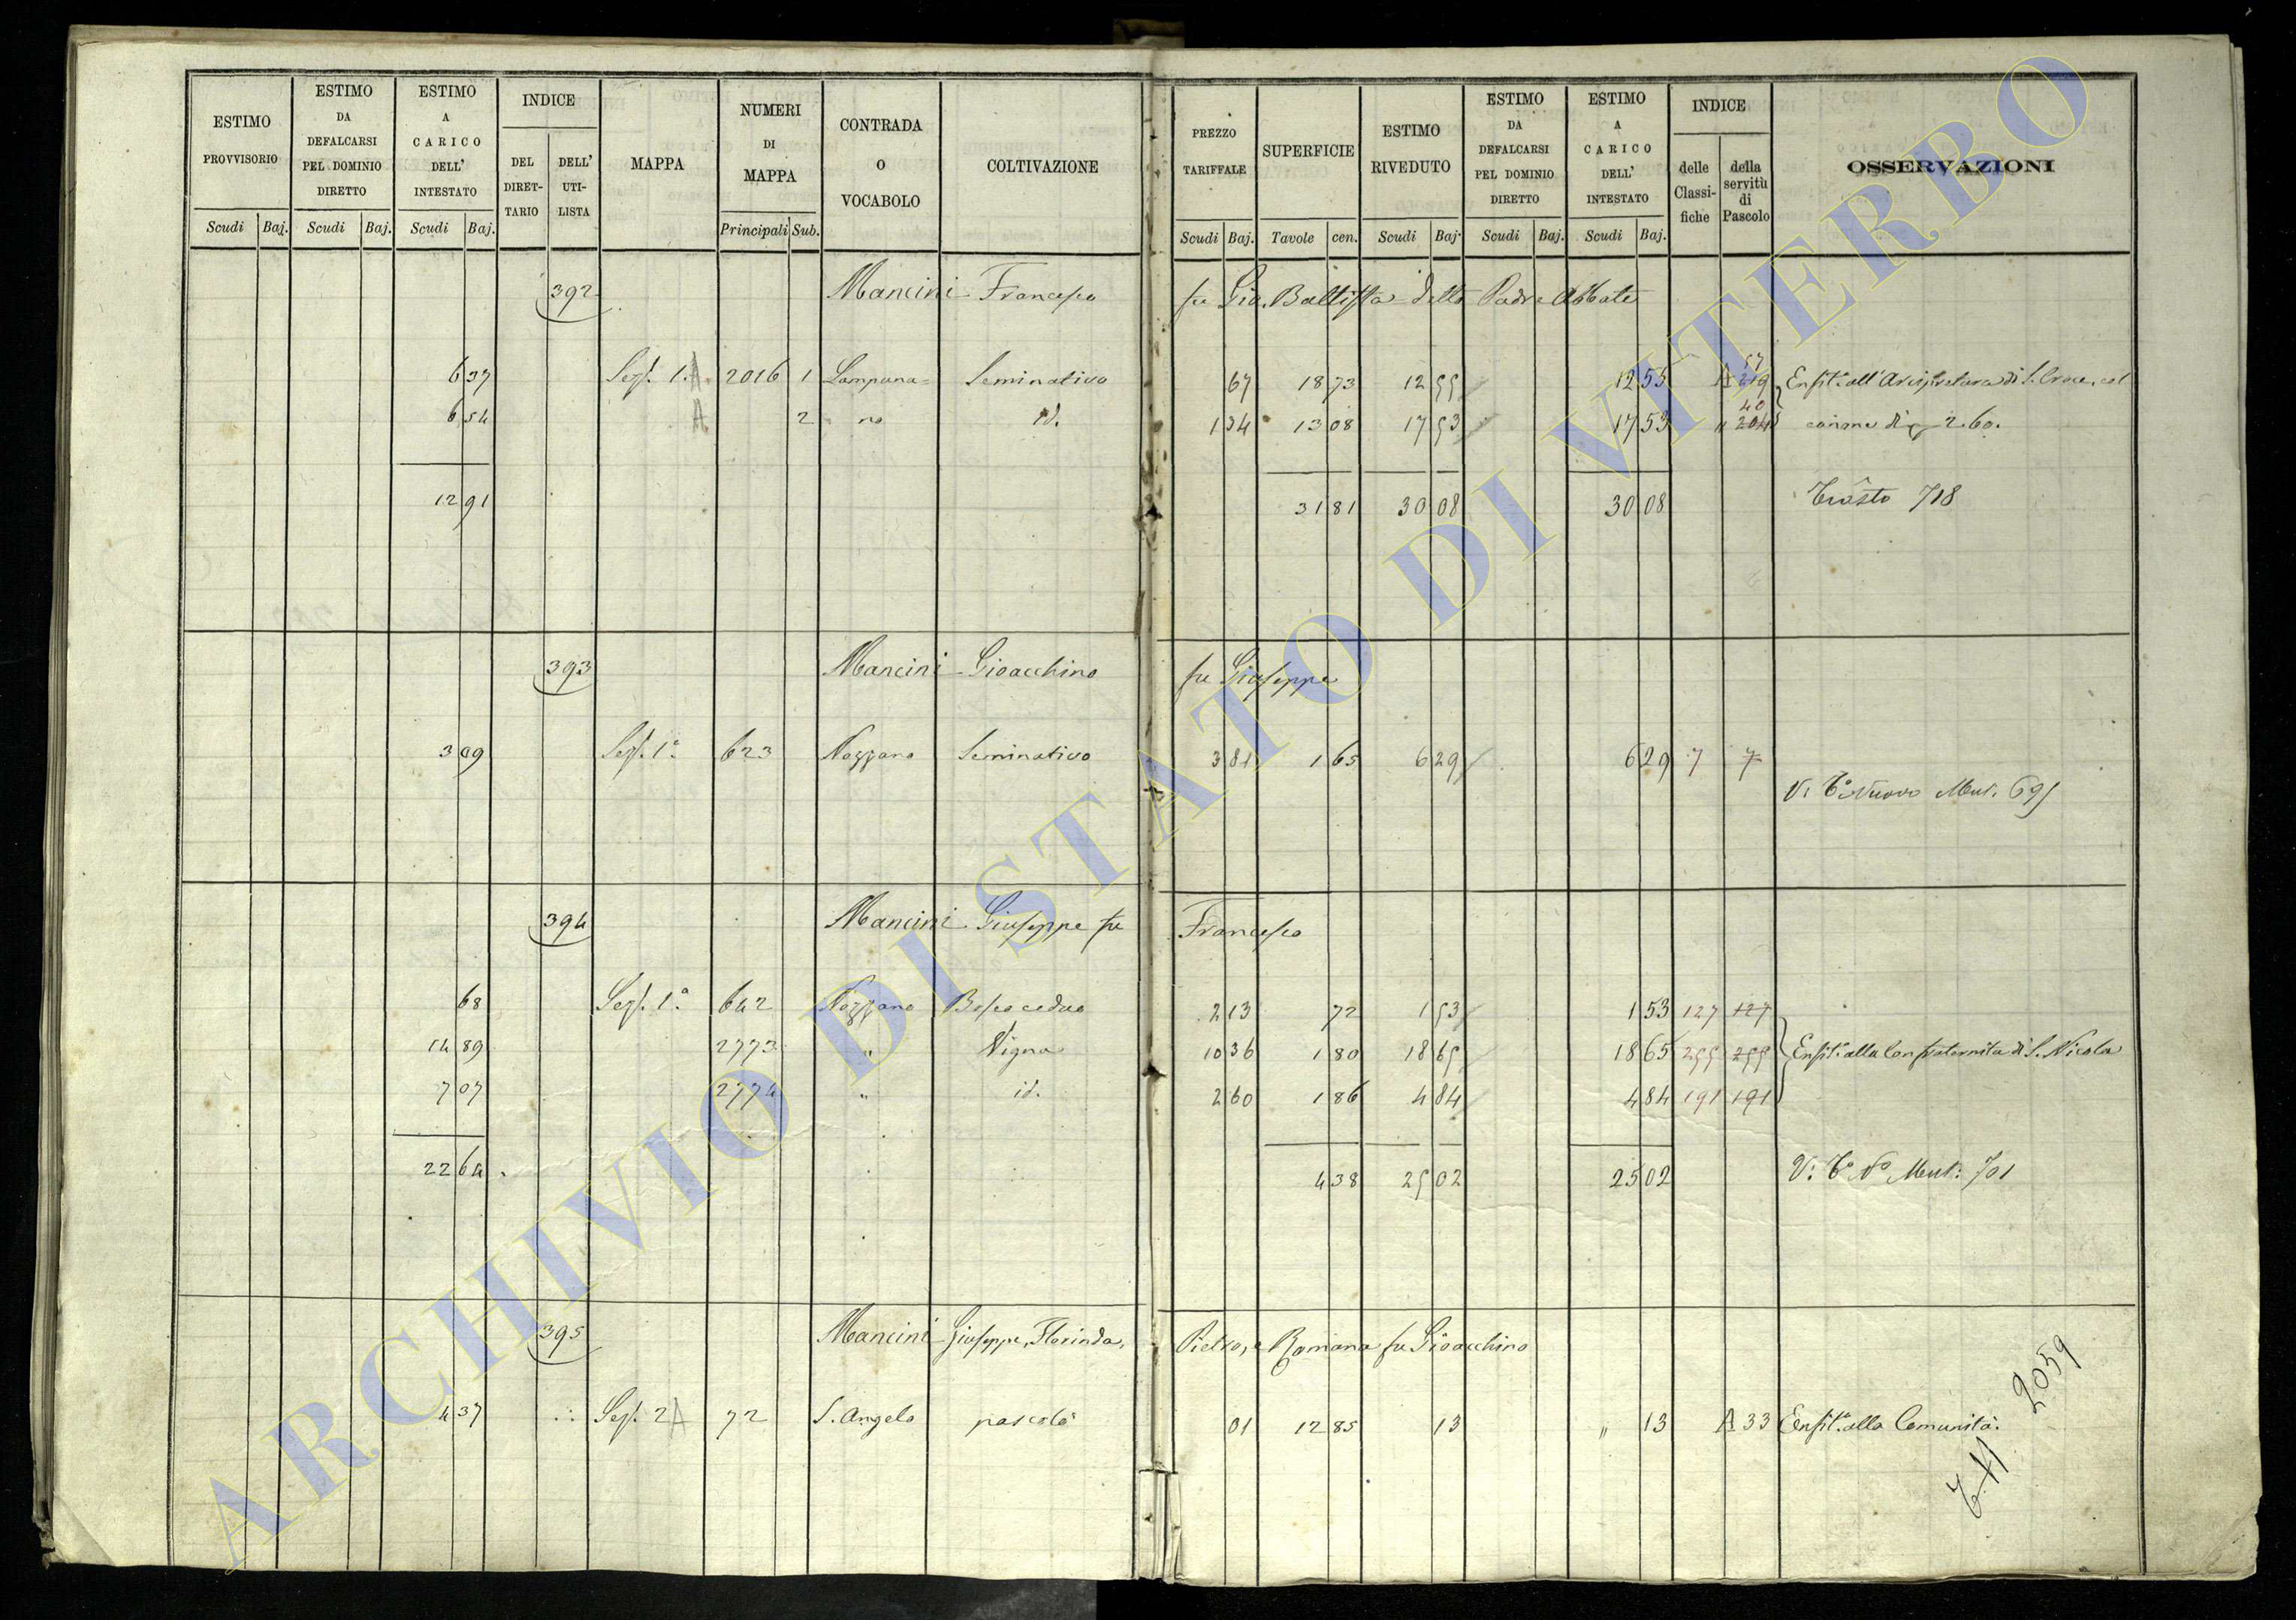 ESTIMO PROVVISORIO
ESTIMO DA DEFALCARSI PEL DOMINIO DIRETTO
ESTIMO A CARICO DELL' INTESTATO
INDICE
DEL DIRET- TARIO
DELL' UTI- LISTA
MAPPA
NUMERI DI MAPPA
CONTRADA O VOCABOLO
COLTIVAZIONE
PREZZO TARIFFALE
SUPERFICIE
ESTIMO RIVEDUTO
ESTIMO DA DEFALCARSI PEL DOMINIO DIRETTO
ESTIMO A CARICO DELL' INTESTATO
INDICE
delle Classi- fiche
della servitù di Pascolo
OSSERVAZIONI
Scudi Baj. Scudi Baj. Scudi Baj. Principali Sub. Scudi Baj. Tavole cen. Scudi Baj. Scudi Baj. Scudi Baj.
392 Mancini Francesco fu Gio. Battista detto Padre Abbate
6 37 Sez. 1. A 2016 1 Lampana= Seminativo 67 18 73 12 55 12 55 A 219 57 Enfit. all'Arcipretura di S. Croce, col
6 54 A 2 no id. 1 34 13 08 17 53 17 53 " 204 40 canone di 2.60.
12 91 31 81 30 08 30 08 718
393 Mancini Gioacchino fu Giuseppe
3 09 Sez. 1ª 623 Nozzano Seminativo 3 81 1 65 6 29 6 29 7 7
V. Nuovo Mut. 695
394 Mancini Giuseppe fu Francesco
68 Sez. 1ª 642 Nozzano Bosco ceduo 2 13 72 1 53 1 53 127 127
14 89 2773 " Vigna 10 36 1 80 18 65 18 65 255 255 Enfit. alla Confraternita di S. Nicola
7 07 2774 " id. 2 60 1 86 4 84 4 84 191 191
22 64 4 38 25 02 25 02 V. Nº Mut: 701
395 Mancini Giuseppe, Florinda, Pietro, e Romana fu Gioacchino
4 37 Sez. 2 A 72 S. Angelo pascolo 01 12 85 13 " 13 A 33 Enfit. alla Comunità.
2059
ARCHIVIO DI STATO DI VITERBO